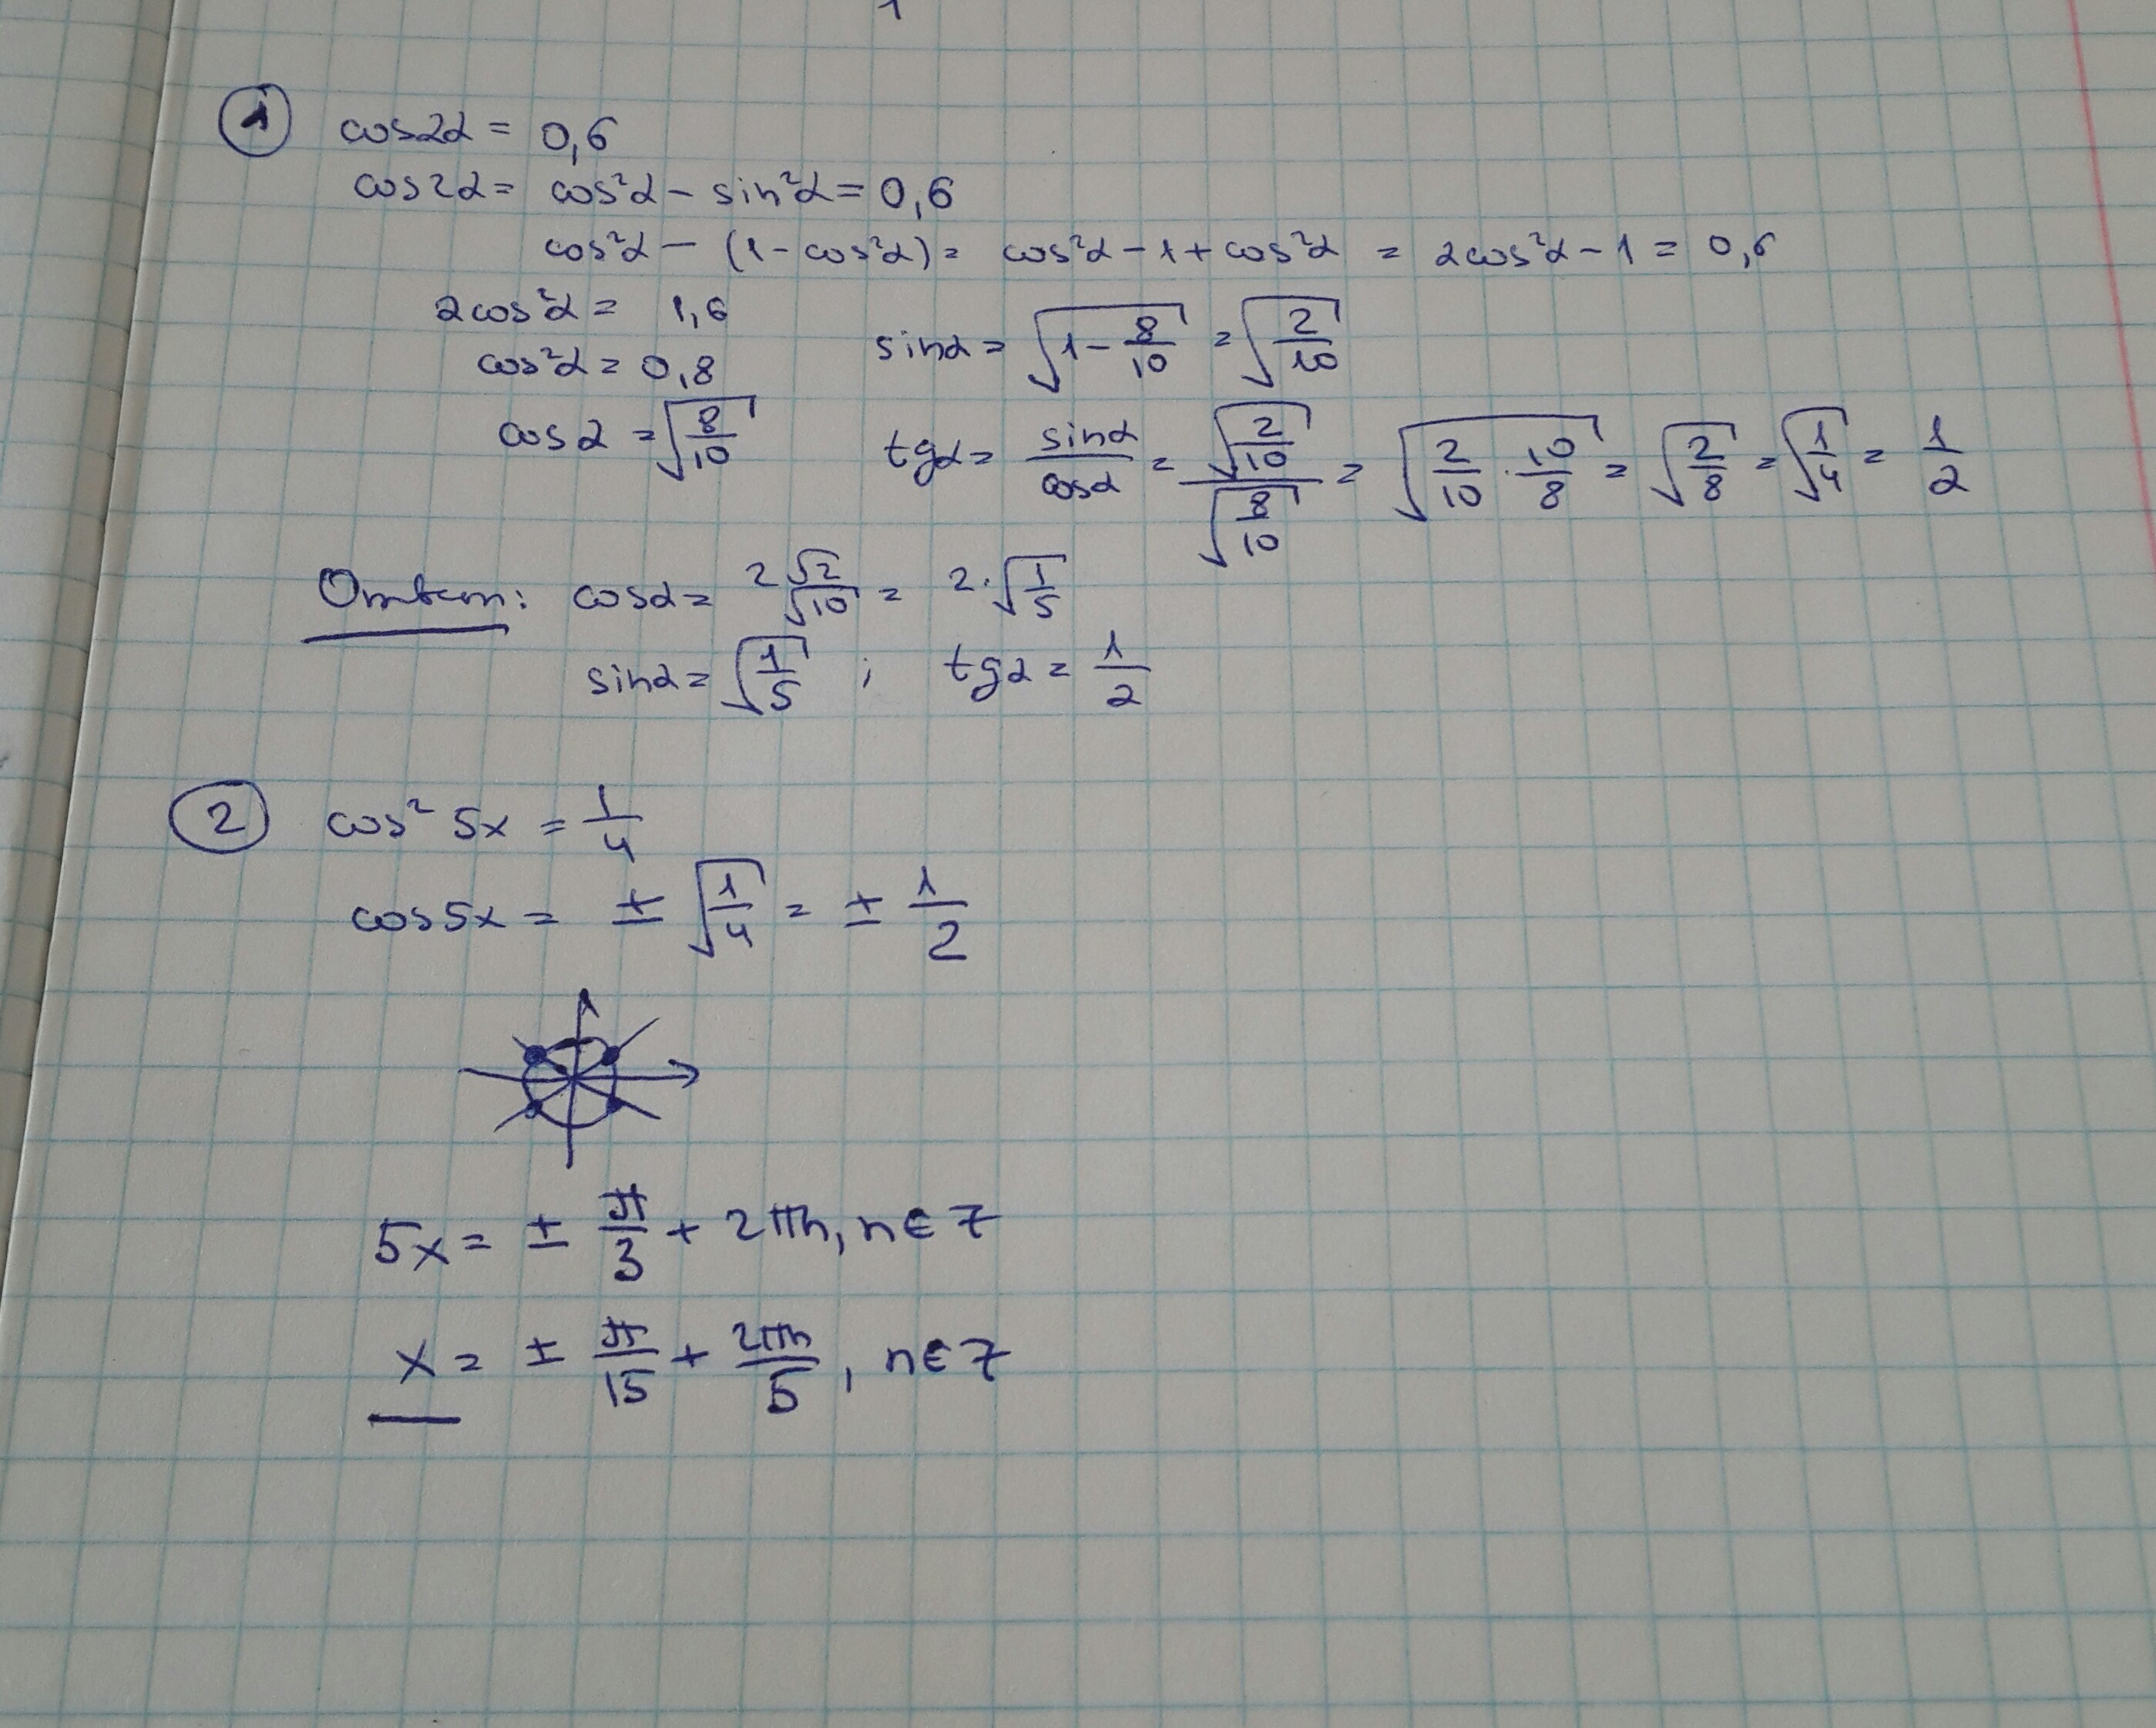 1 cos2α = 0,6
cos2α = cos²α - sin²α = 0,6
cos²α - (1 - cos²α) = cos²α - 1 + cos²α = 2cos²α - 1 = 0,6
2cos²α = 1,6
cos²α = 0,8 sinα = √(1 - 8/10) = √(2/10)
cosα = √(8/10) tgα = sinα/cosα = √(2/10)/√(8/10) = √(2/10 · 10/8) = √(2/8) = √(1/4) = 1/2
Ответ: cosα = 2√2/√10 = 2·√(1/5)
sinα = √(1/5) ; tgα = 1/2
2 cos² 5x = 1/4
cos5x = ± √(1/4) = ± 1/2
5x = ± π/3 + 2πn, n∈Z
x = ± π/15 + 2πn/5, n∈Z